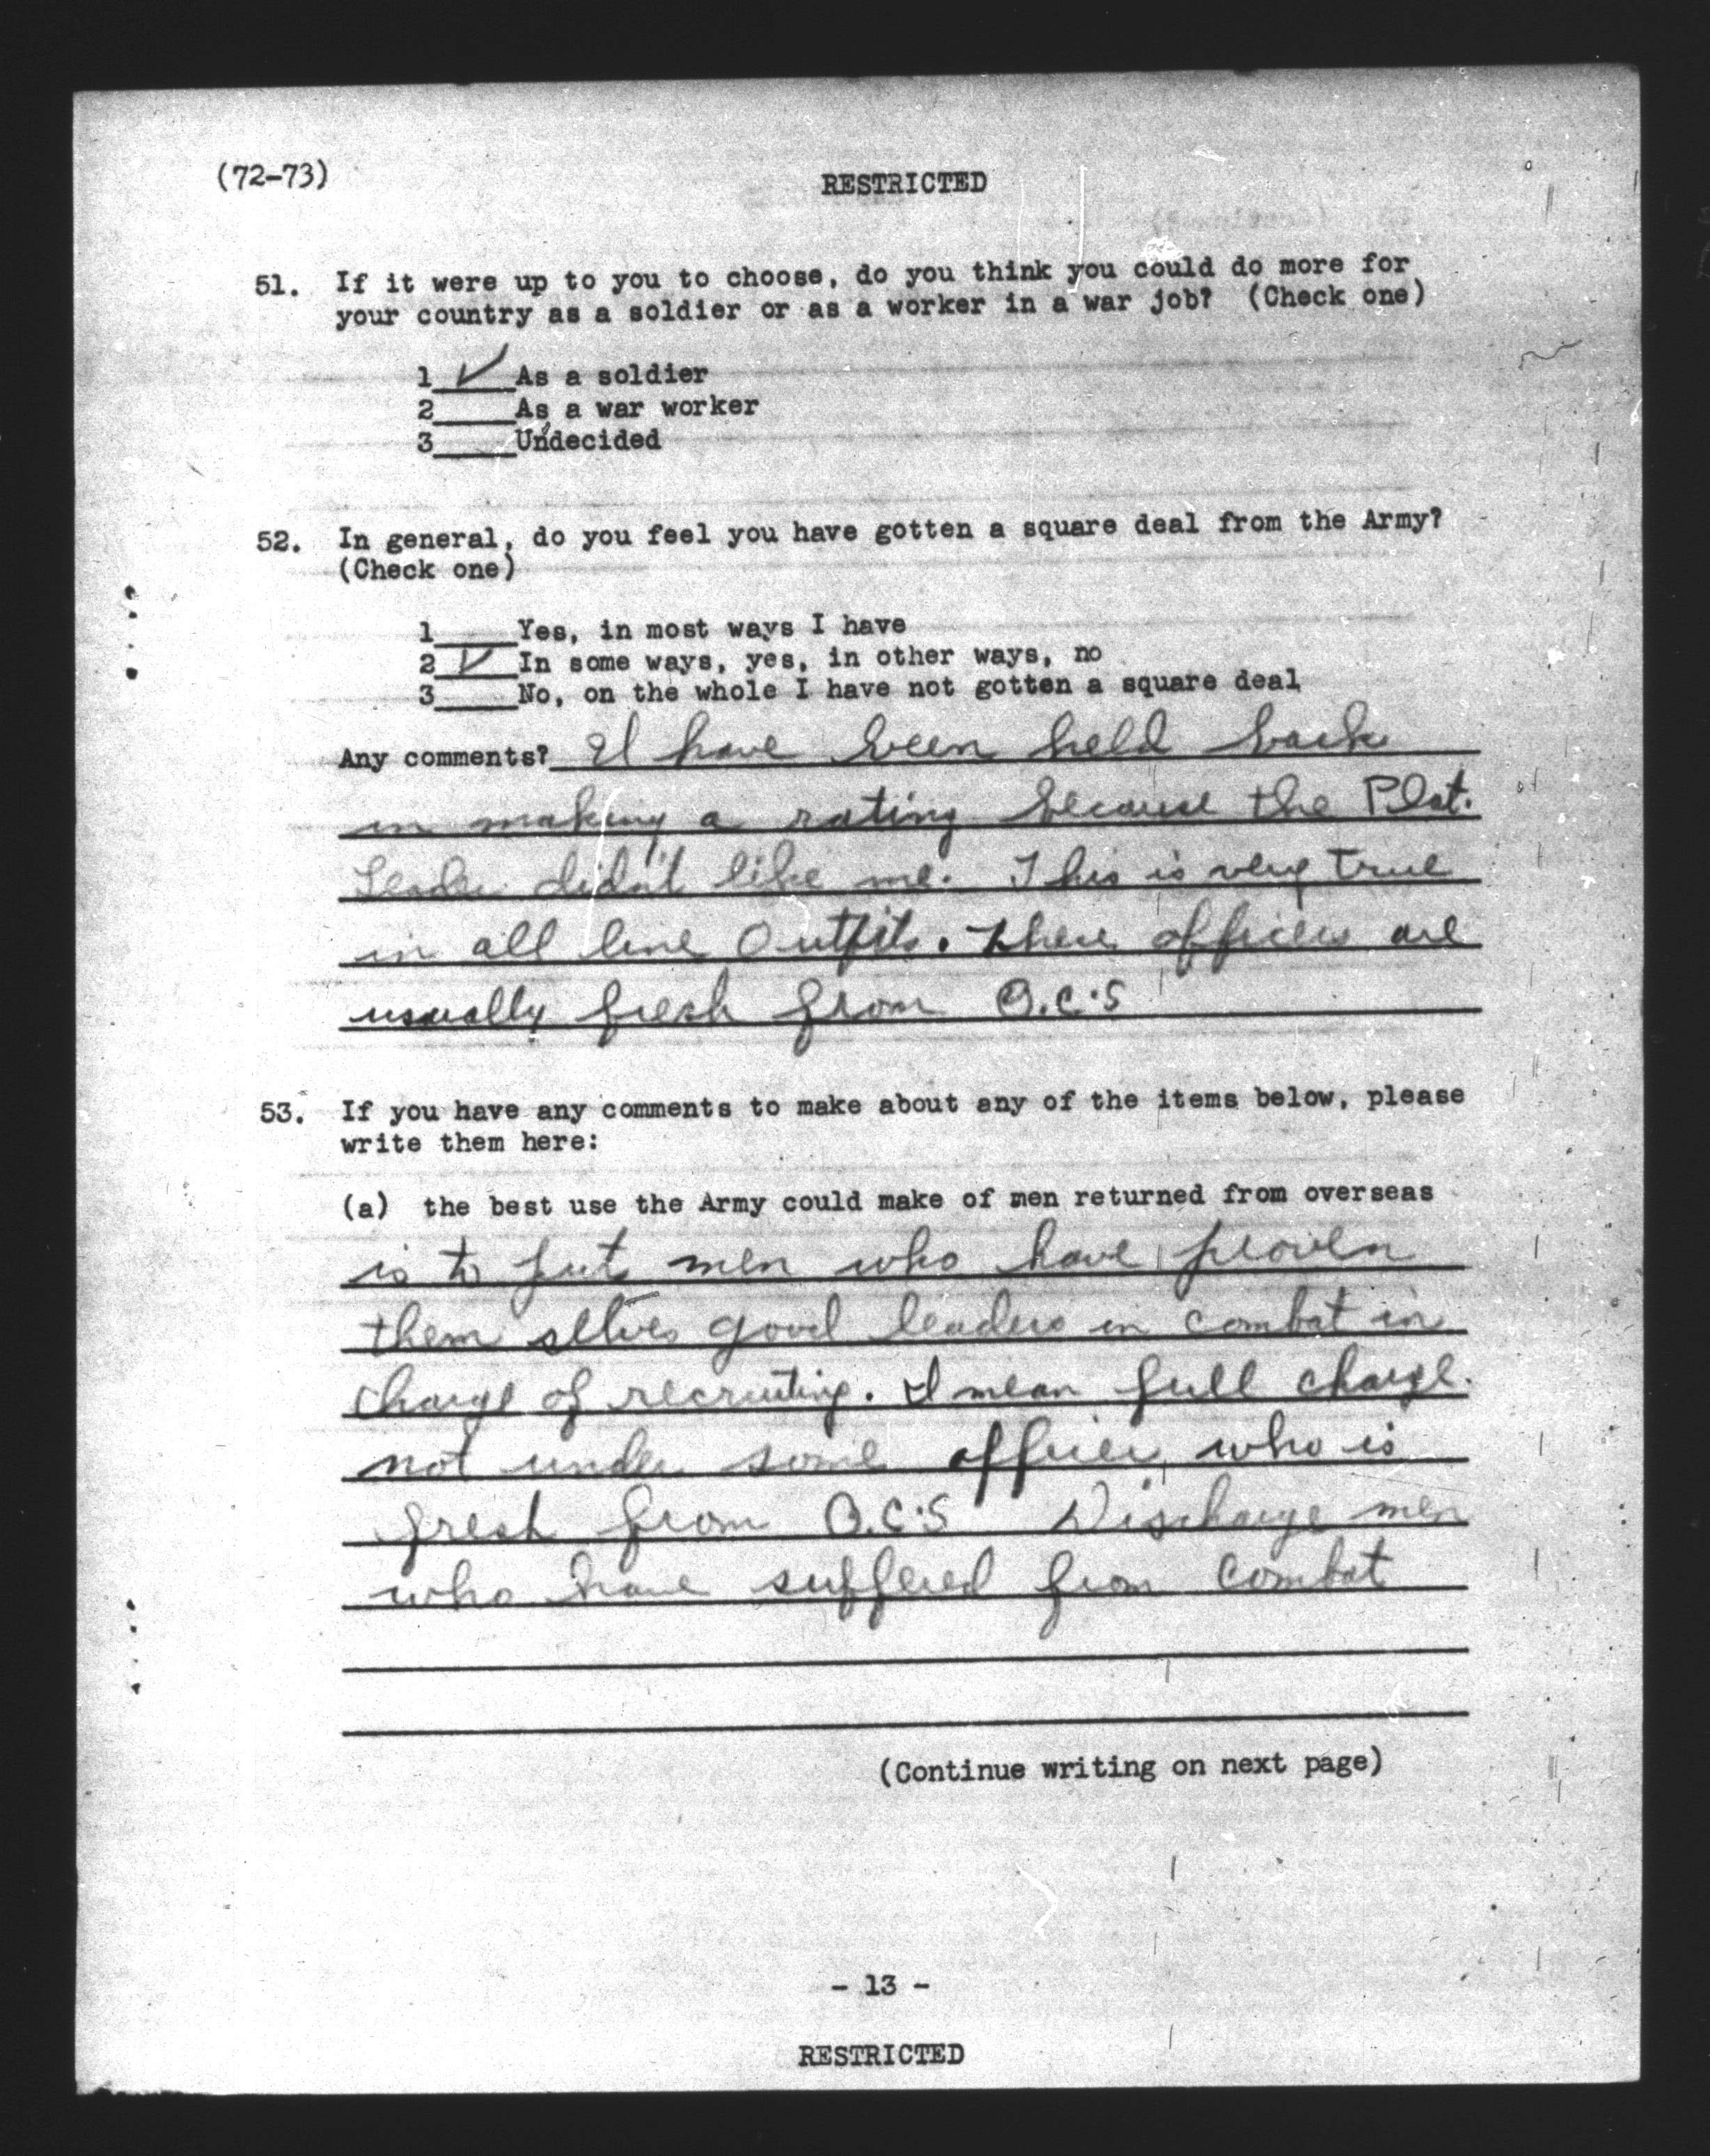 (72-73)
RESTRICTED
51. If it were up to you to choose, do you think you could do more for
your country as a soldier or as a worker in a war job? (Check one)
1 ✓ As a soldier
2____As a war worker
3____Undecided
52. In general, do you feel you have gotten a square deal from the Army?
(Check one)
1____Yes, in most ways I have
2 ✓ In some ways, yes, in other ways, no
3____No, on the whole I have not gotten a square deal
Any comments? I have been held back
in making a rating because the Plat.
Leader didn't like me. This is very true
in all line Outfits. These officers are
usually fresh from O.C.S
53. If you have any comments to make about any of the items below, please
write them here:
(a) the best use the Army could make of men returned from overseas
is to put men who have proven
them selves good leaders in combat in
charge of recruiting. I mean full charge.
not under some officer who is
fresh from O.C.S Discharge men
who have suffered from combat
(Continue writing on next page)
- 13 -
RESTRICTED